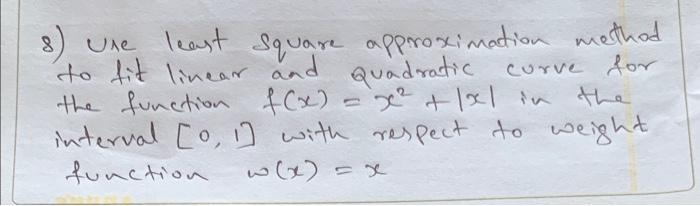 8) Use least square approximation method
to fit linear and quadratic curve for
the function f(x) = x² + |x| in the
interval [0, 1] with respect to weight
function w(x) = x